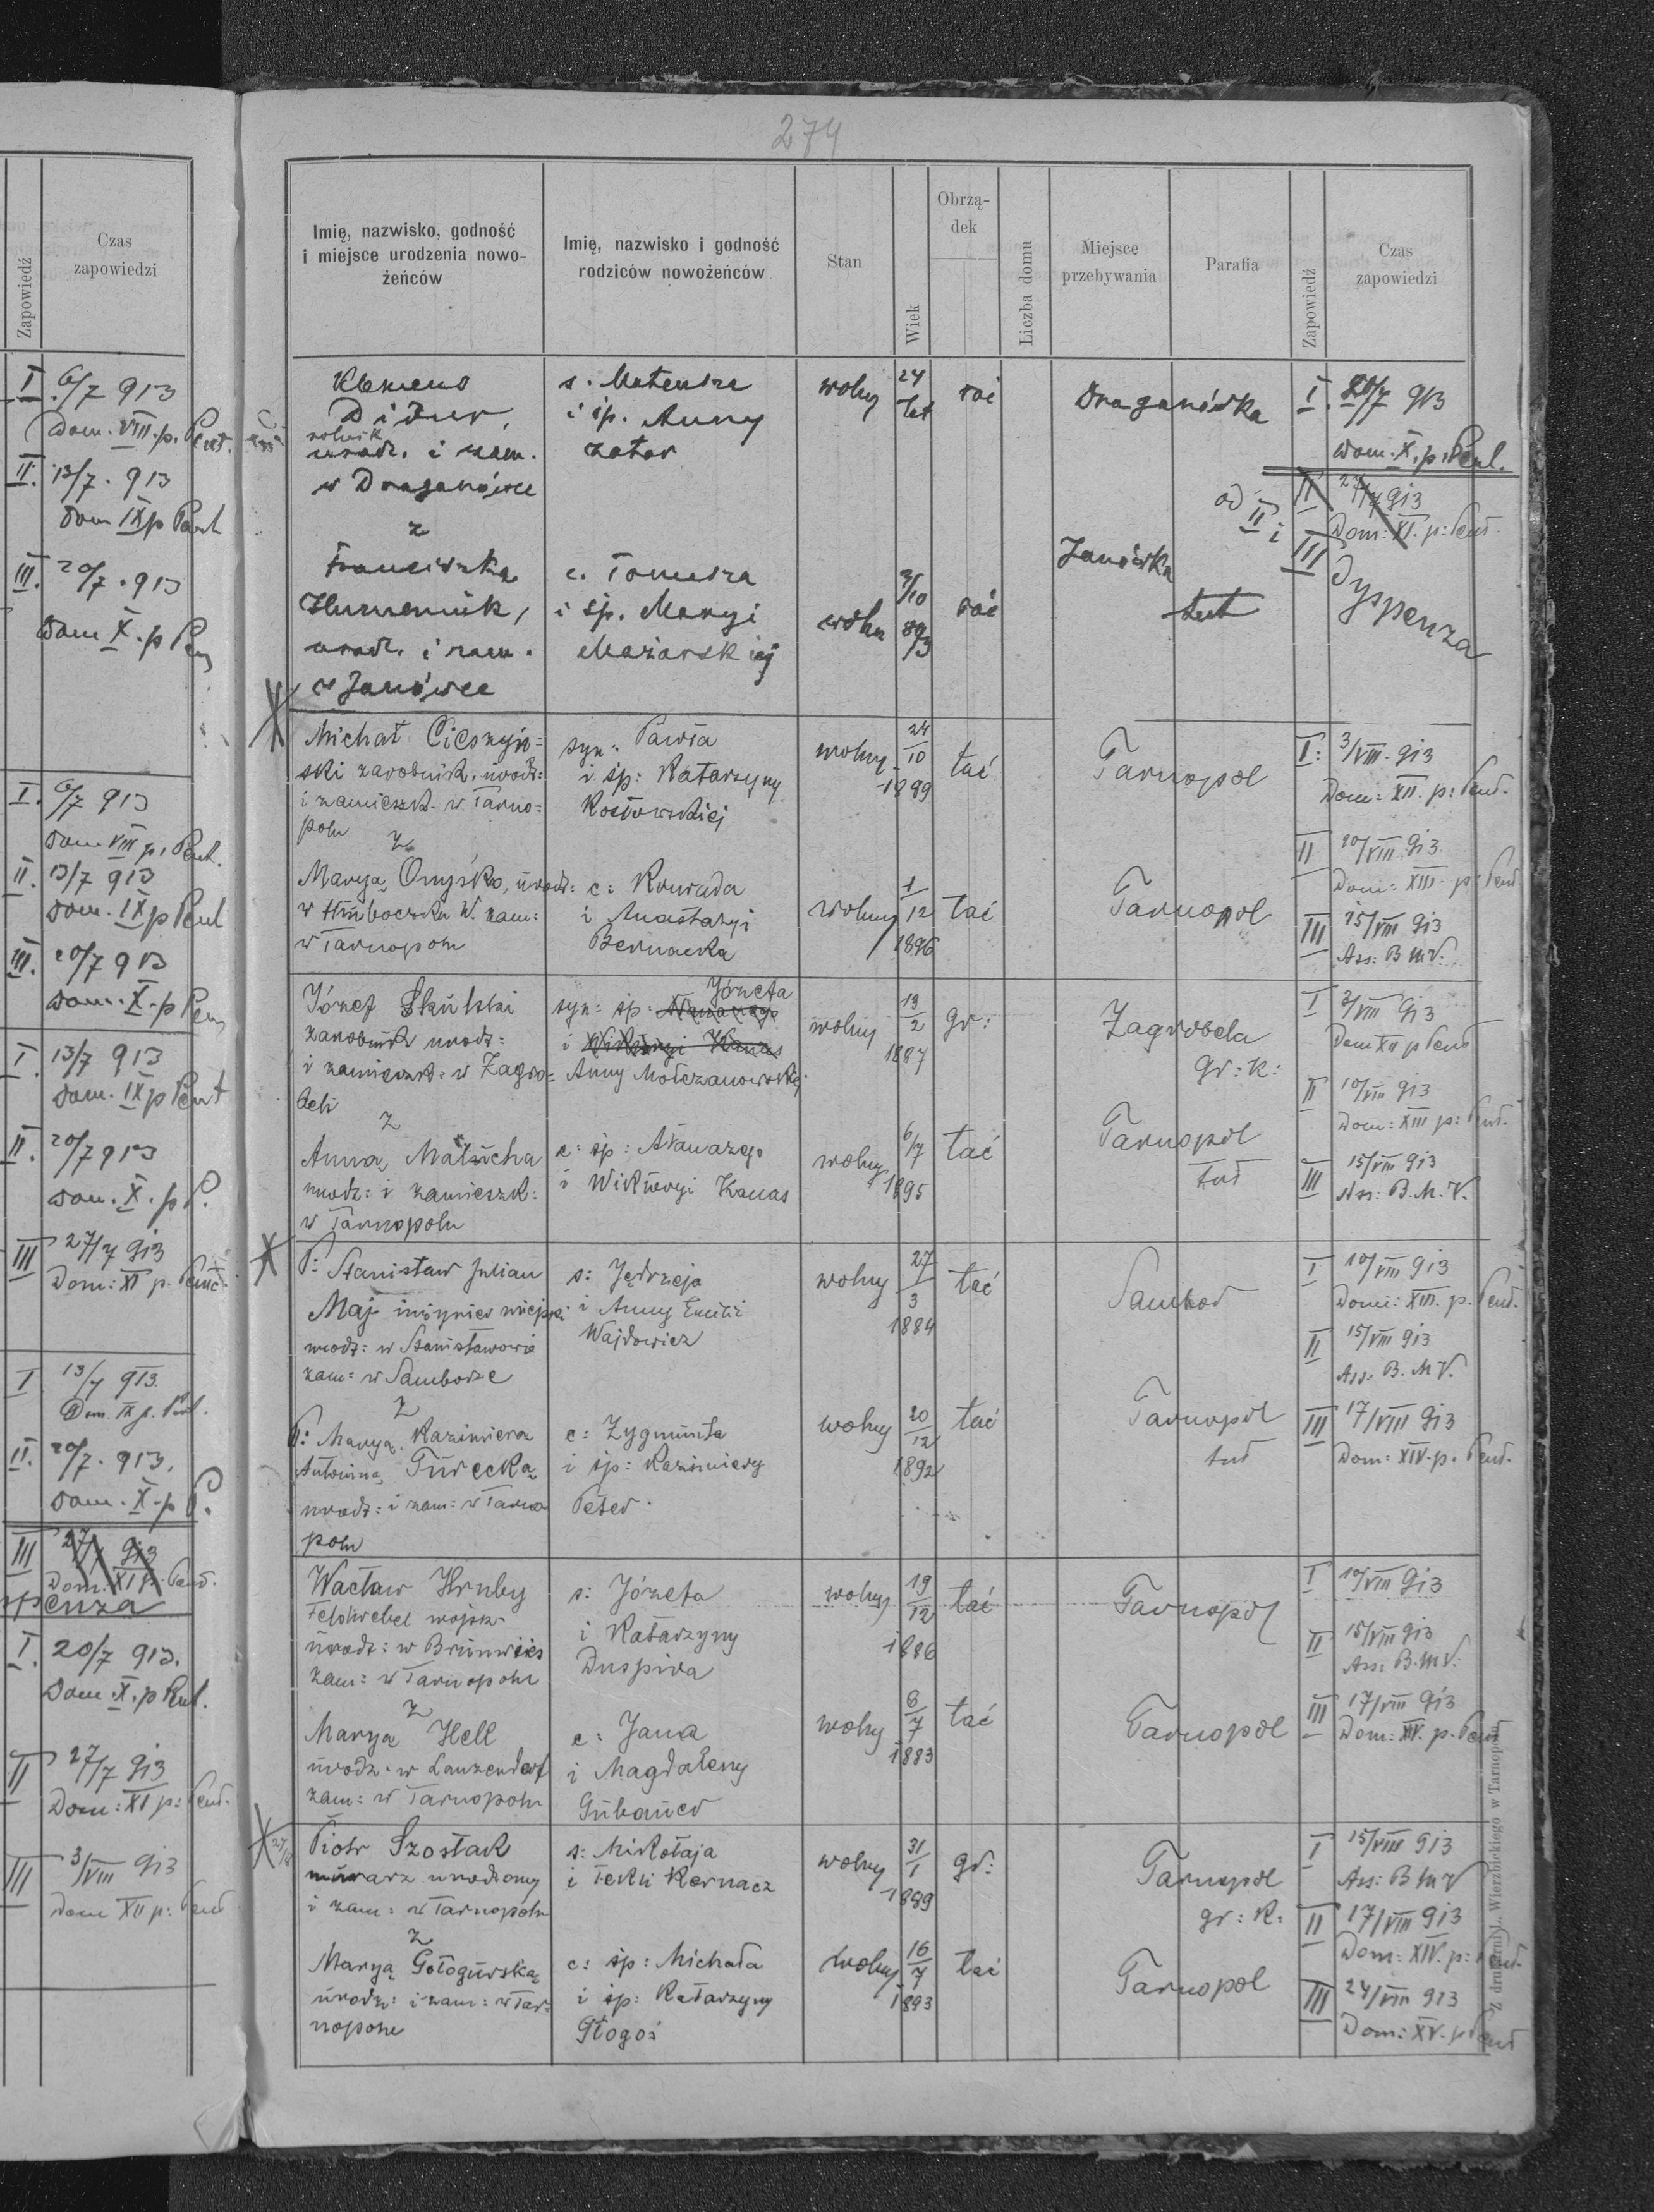 Zapowiedź
Czas zapowiedzi
I 6/7 913
Dom. VIII. p. Pent.
II. 13/7. 913
Dom IX p Pent
III. 20/7. 913
Dom X. p Pen
I. 6/7 913
Dom VIII p. Pent.
II. 13/7 913
Dom. IX p Pent
III. 20/7 913
Dom. X. p Pen
I 13/7 913
Dom. IX p Pent
II. 20/7 913
Dom. X. p P.
III 27/7 913
Dom: XI p. Pent
I 13/7 913.
Dom. IX p. Pent.
II. 20/7. 913.
Dom. X. p P.
III 27/7 913
Dom: XI p. Pent.
spenza
I. 20/7 913.
Dom. X. p Pent.
II 27/7 913
Dom: XI p: Pent.
III 3/VIII 913
Dom XII p: Pent
274
Imię, nazwisko, godność
i miejsce urodzenia nowo-
żeńców
Imię, nazwisko i godność
rodziców nowożeńców
Stan
Wiek
Obrzą-
dek
Liczba domu
Miejsce
przebywania
Parafia
Zapowiedź
Czas
zapowiedzi
Klemens
Didur,
rolnik
urodz. i zam.
w Draganówce
z
Franciszka
urodz. i zam.
w Janówce
s. Mateusza
i śp. Anny
zator
c. Tomasza
i śp. Maryi
Mazarskiej
wolny
24
lat
Draganówka
I. 20/7 913
Dom. X. p. Pent.
II 27/7 913
Dom: XI. p: Pent.
od II i III
Dyspenza
wolna
Janówka
tut
Michał
ski zarobnik, urodz:
i zamieszk. w Tarno=
polu
z
Marya Onyśko, urodz:
w Hłuboczku W. zam:
w Tarnopolu
syn: Pawła
i śp: Katarzyny
Kozłowskiej
c: Konrada
i Anastazyi
Bernacka
wolny
24
10
1889
łać
Tarnopol
I: 3/VIII. 913
Dom: XII. p: Pent.
II 10/VIII 913
Dom: XIII. p: Pent
III 15/VIII 913
Ass: B M V.
wolny
1
12
1896
łać
Tarnopol
Józef Skulski
zarobnik urodz:
i zamieszk: w Zagro=
beli
z
Anna Matucha
urodz: i zamieszk:
w Tarnopolu
syn: śp: Józefa
i Wiktoryi Kanas
Anny Mołczanowskiej
c: śp: Makarego
i Wiktoryi Kanas
wolny
13
2
1887
gr:
Zagrobela
gr: k:
I 3/VIII 913
Dom XII p Pent
II 10/VIII 913
Dom: XIII p: Pent.
III 15/VIII 913
Ass: B. M. V.
wolny
6/7
1895
łać
Tarnopol
tut
P: Stanisław Julian
Maj inżynier miejski
urodz: w Stanisławowie
zam: w Samborze
z
P: Marya Kazimiera
Antonina Turecka
urodz: i zam: w Tarno
polu
s: Jędrzeja
i Anny Emilii
Wajdowicz
c: Zygmunta
i śp: Kazimiery
Peter.
wolny
27
3
1884
łać
Sambor
I 10/VIII 913
Dom: XIII. p. Pent.
II 15/VIII 913
Ass: B. M V.
III 17/VIII 913
Dom: XIV. p. Pent.
wolny
20
12
1892
łać
Tarnopol
tut
Wacław Hruby
Feldwebel wojsk
urodz: w
zam: w Tarnopolu
z
Marya Hell
urodz. w Lanzendorf
zam: w Tarnopolu
s: Józefa
i Katarzyny
Duspiva
c: Jana
i Magdaleny
wolny
19
12
1886
łać
Tarnopol
I 10/VIII 913
II 15/VIII 913
Ass: B. M V.
III 17/VIII 913
Dom: XIV. p. Pent
wolny
6
7
1883
łać
Tarnopol
Piotr Szostak
murarz urodzony
i zam: w Tarnopolu
z
Marya Gołogórska
urodz: i zam: w Tar=
nopolu
s: Mikołaja
i Tekli Kernacz
c: śp: Michała
i śp: Katarzyny
Głogoś
wolny
31
1
1889
gr:
Tarnopol
gr: k:
I 15/VIII 913
Ass: B M V
II 17/VIII 913
Dom: XIV. p: Pent.
III 24/VIII 913
Dom: XV. p Pent
wolny
16
7
1893
łać
Tarnopol
Z drukarni L. Wierzbickiego w Tarnopolu